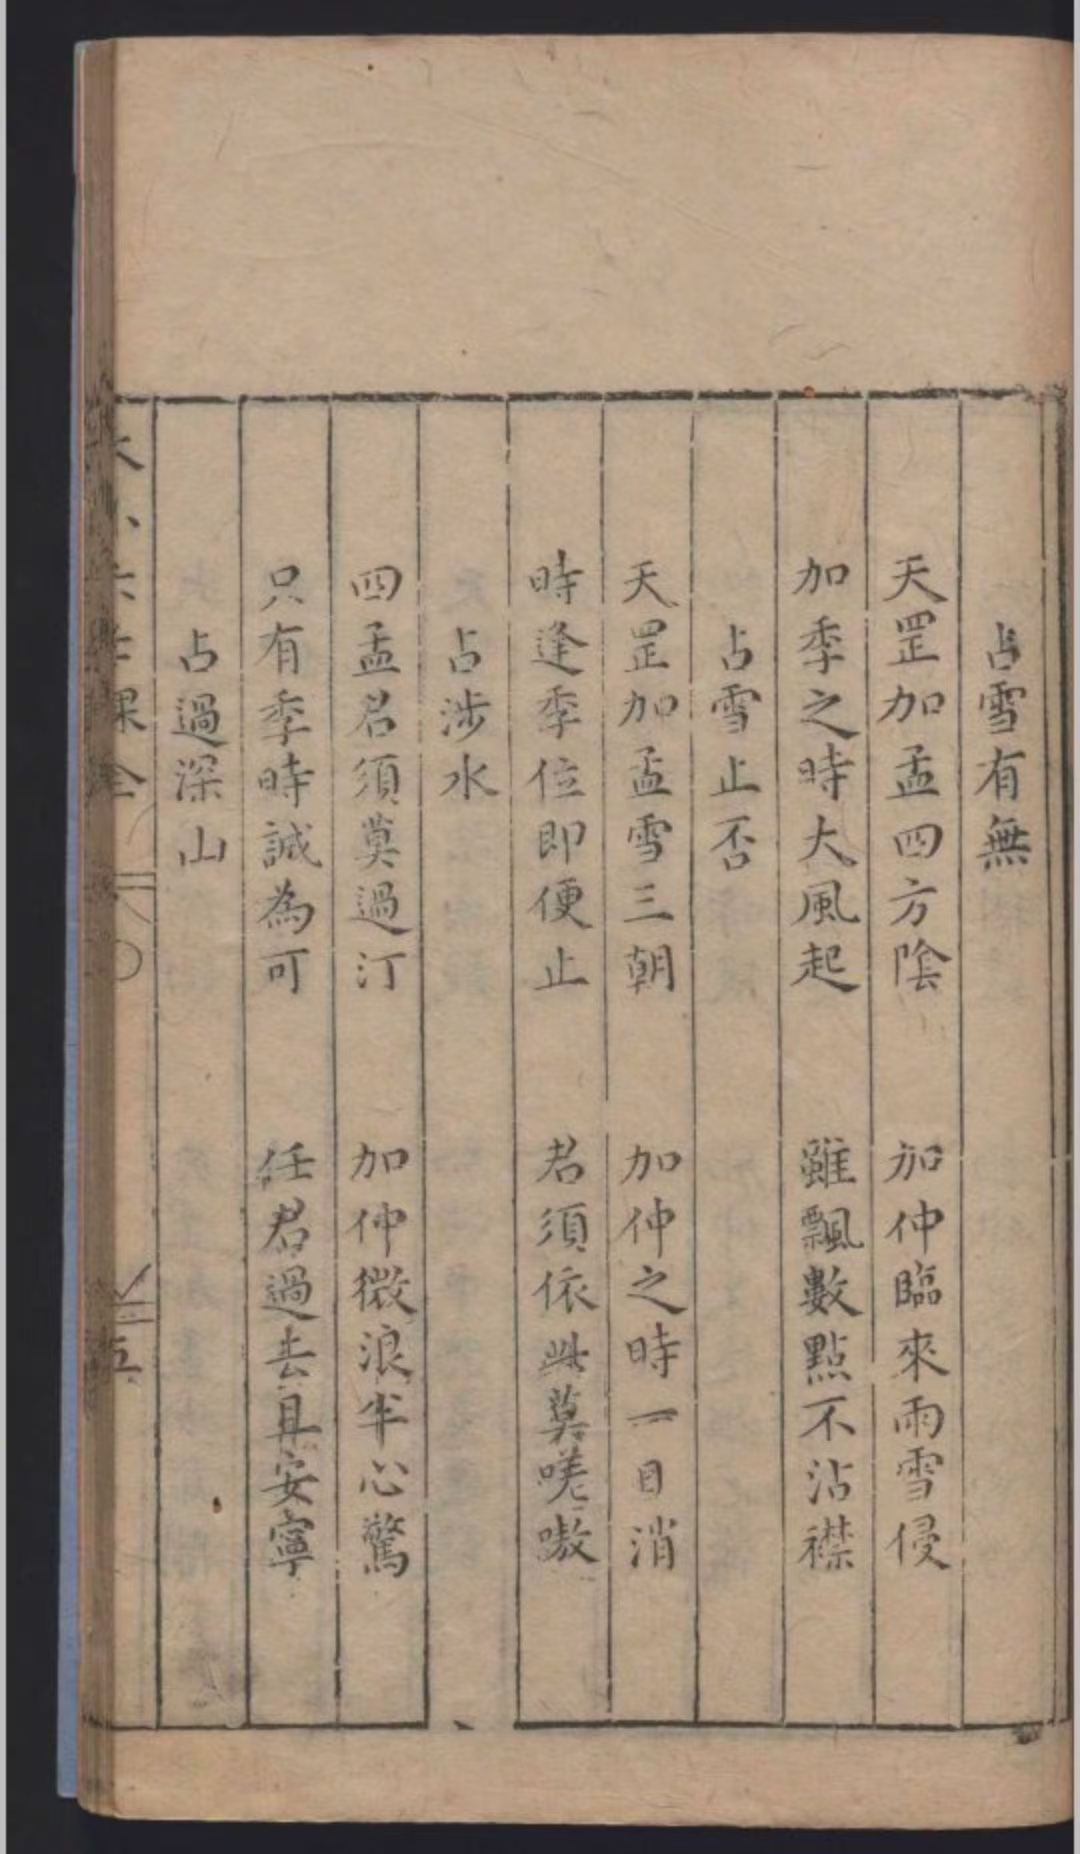 占雪有無
天罡加孟四方陰　加仲臨來雨雪侵
加季之時大風起　雖飄數點不沾襟
占雪止否
天罡加孟雪三朝　加仲之時一日消
時逢季位即便止　君須依此莫嘆嗷
占涉水
四孟君須莫過汀　加仲微浪半心驚
只有季時誠為可　任君過去且安寧
占過深山
大小六壬課全
五